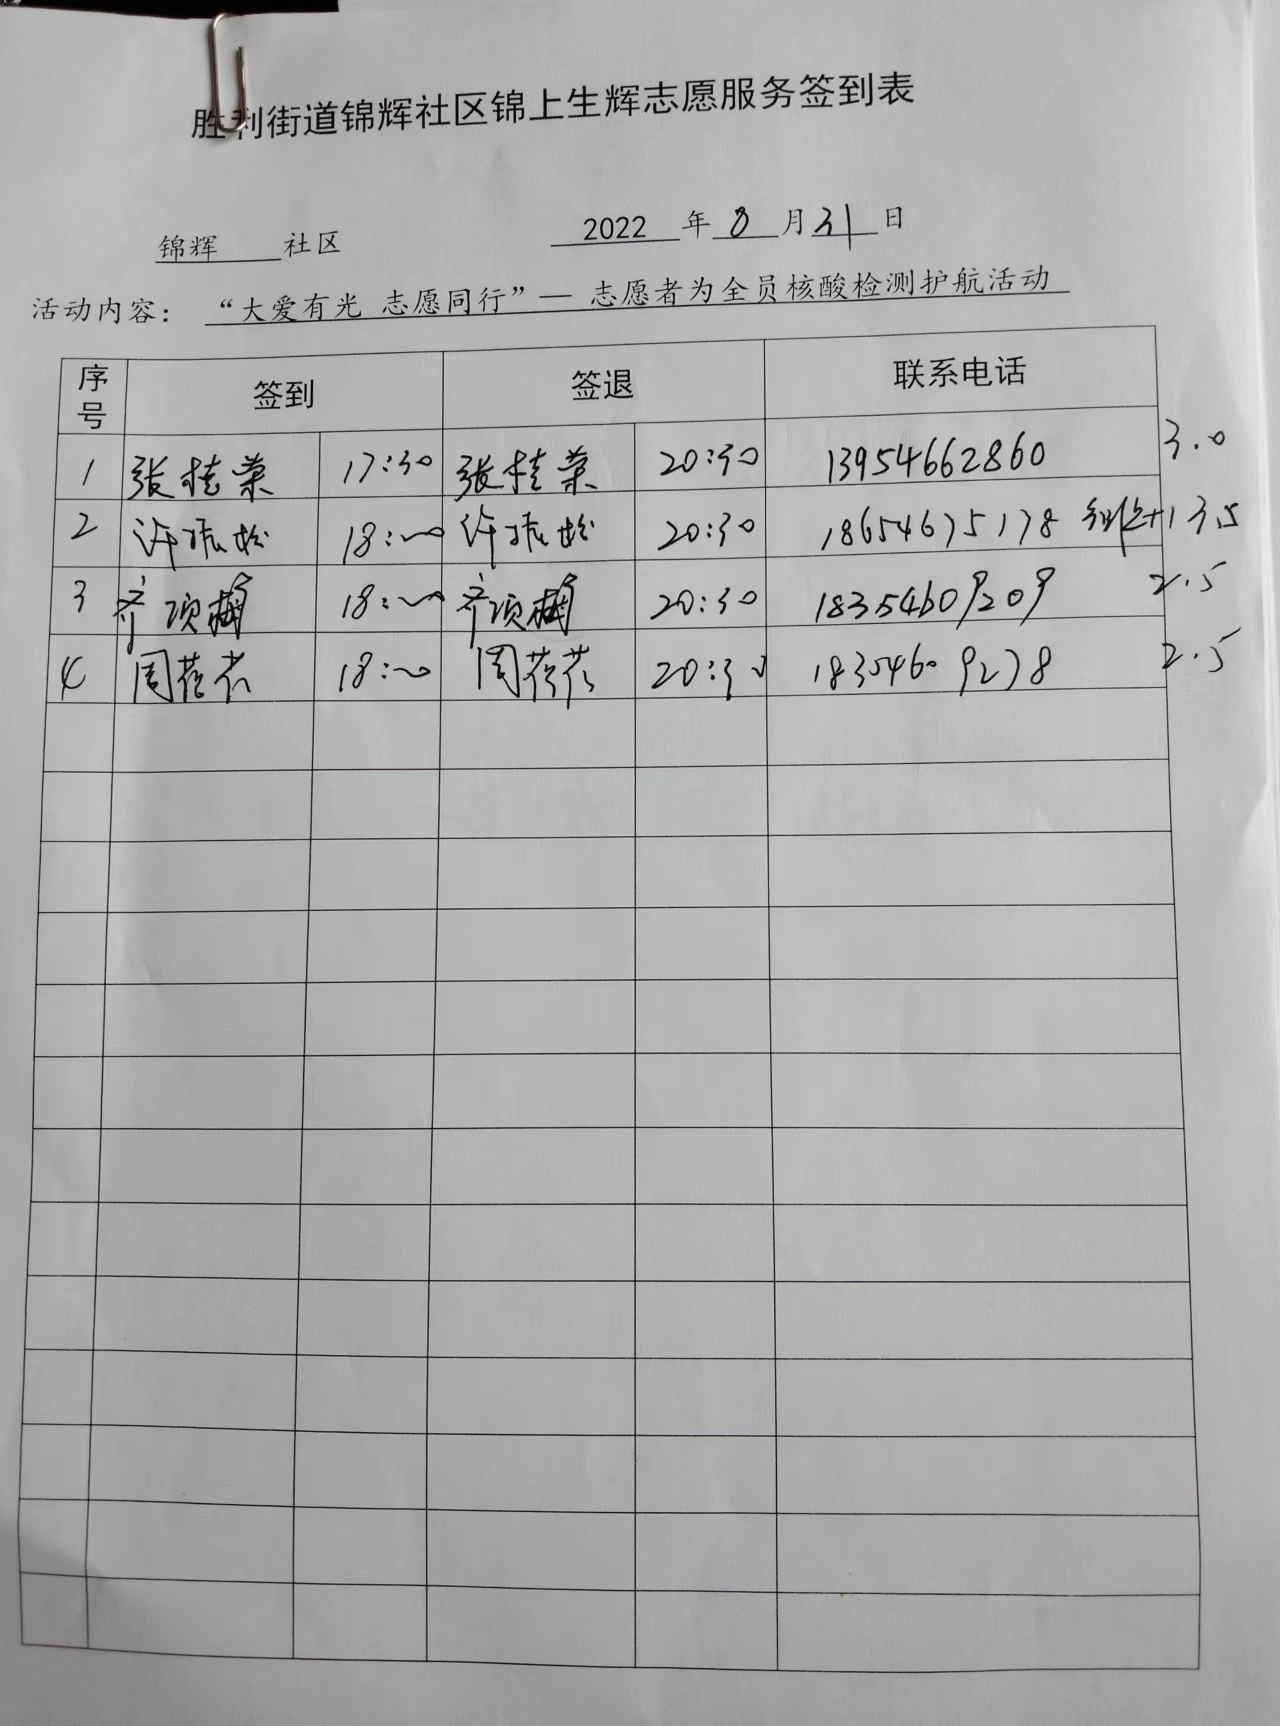 胜利街道锦辉社区锦上生辉志愿服务签到表
锦辉 社区 2022 年 8 月 31 日
活动内容: “大爱有光 志愿同行”— 志愿者为全员核酸检测护航活动
序号 签到 签退 联系电话
1 张桂荣 17:30 张桂荣 20:30 13954662860 3.0
2 许振 18:00 许振 20:30 18654675178 +1 3.5
3 齐项梅 18:00 齐项梅 20:30 18354609209 2.5
4 周 18:00 周 20:30 18354609278 2.5